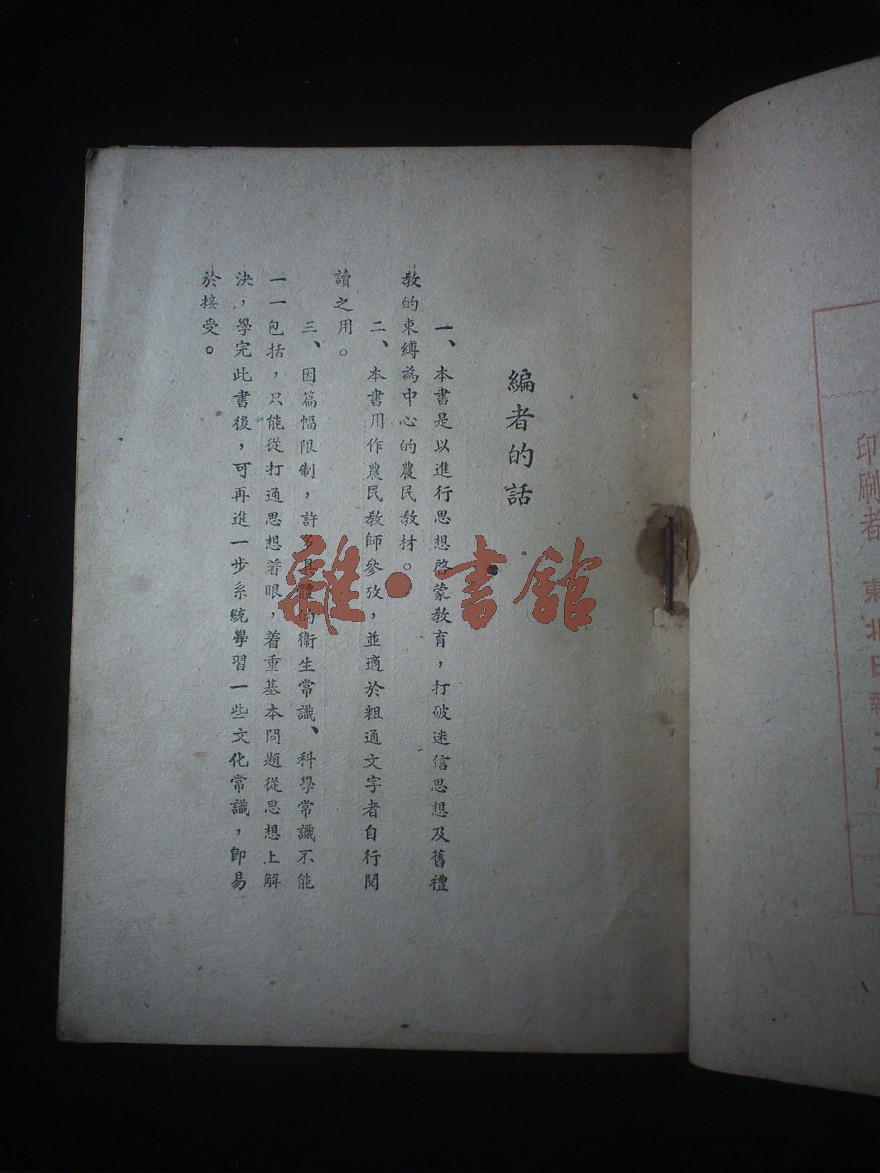 印刷者 東北日報工廠
編者的話
一、本書是以進行思想啓蒙教育，打破迷信思想及舊禮
教的束縛爲中心的農民教材。
二、本書用作農民教師參攷，並適於粗通文字者自行閱
讀之用。
三、因篇幅限制，許多具體的衞生常識、科學常識不能
一一包括，只能從打通思想着眼，着重基本問題從思想上解
決，學完此書後，可再進一步系統學習一些文化常識，即易
於接受。
雜·書館